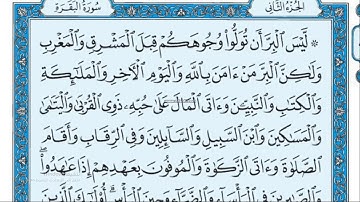 الجزء الثاني
سورة البقرة
۞ لَّيْسَ ٱلْبِرَّ أَن تُوَلُّوا۟ وُجُوهَكُمْ قِبَلَ ٱلْمَشْرِقِ وَٱلْمَغْرِبِ
وَلَٰكِنَّ ٱلْبِرَّ مَنْ ءَامَنَ بِٱللَّهِ وَٱلْيَوْمِ ٱلْءَاخِرِ وَٱلْمَلَٰٓئِكَةِ
وَٱلْكِتَٰبِ وَٱلنَّبِيِّۦنَ وَءَاتَى ٱلْمَالَ عَلَىٰ حُبِّهِۦ ذَوِى ٱلْقُرْبَىٰ وَٱلْيَتَٰمَىٰ
وَٱلْمَسَٰكِينَ وَٱبْنَ ٱلسَّبِيلِ وَٱلسَّآئِلِينَ وَفِى ٱلرِّقَابِ وَأَقَامَ
ٱلصَّلَوٰةَ وَءَاتَى ٱلزَّكَوٰةَ وَٱلْمُوفُونَ بِعَهْدِهِمْ إِذَا عَٰهَدُوا۟ ۖ
وَٱلصَّٰبِرِينَ فِى ٱلْبَأْسَآءِ وَٱلضَّرَّآءِ وَحِينَ ٱلْبَأْسِ ۗ أُو۟لَٰٓئِكَ ٱلَّذِينَ